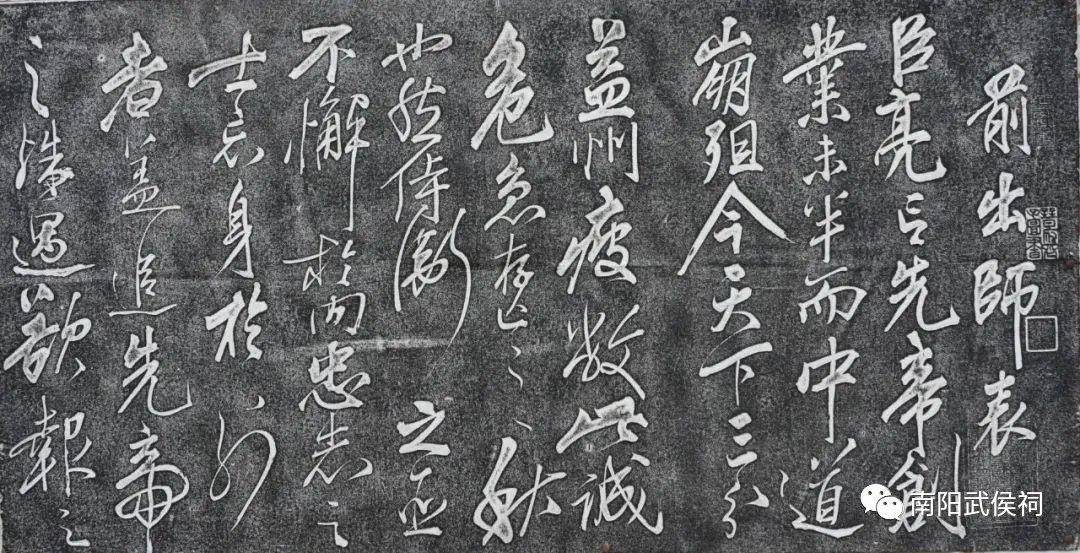 前出師表
臣亮言先帝創
業未半而中道
崩殂今天下三分
益州疲敝此誠
危急存亡之秋
也然侍衛之臣
不懈於內忠志之
士忘身於外
者蓋追先帝
之殊遇欲報之
南阳武侯祠